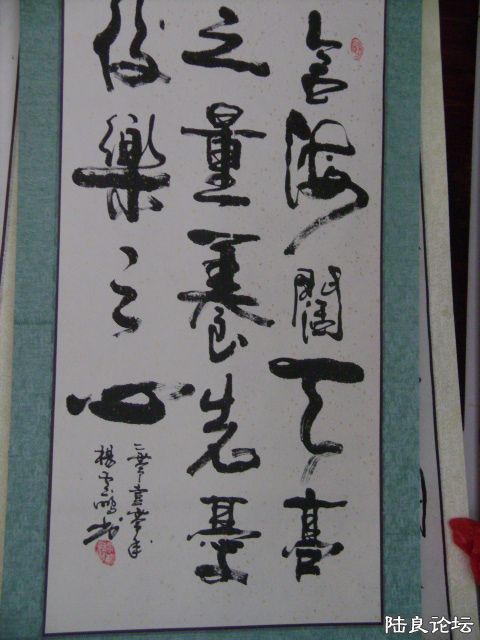 含海闊天高
之量養先憂
後樂之心
二零壹年
楊雲鵬書
陆良论坛